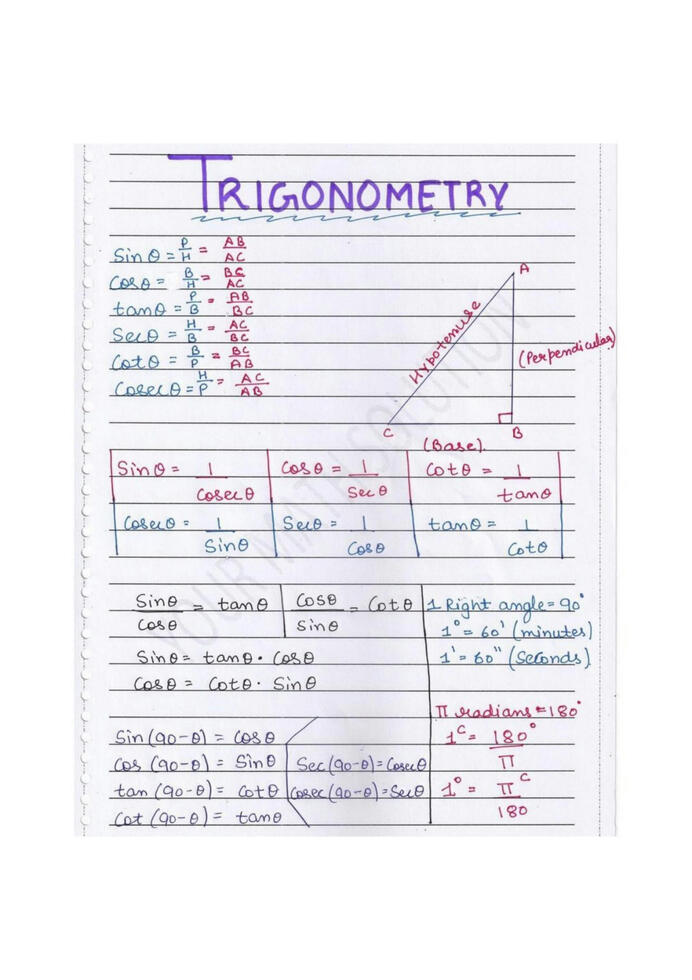 TRIGONOMETRY
Sinθ = P/H = AB/AC
Cosθ = B/H = BC/AC
tanθ = P/B = AB/BC
Secθ = H/B = AC/BC
Cotθ = B/P = BC/AB
Cosecθ = H/P = AC/AB
A
Hypotenuse
(Perpendicular)
C
B
(Base).
Sinθ = 1/Cosecθ
Cosθ = 1/Secθ
Cotθ = 1/tanθ
Cosecθ = 1/Sinθ
Secθ = 1/Cosθ
tanθ = 1/Cotθ
Sinθ/Cosθ = tanθ
Cosθ/Sinθ = Cotθ
Sinθ = tanθ · Cosθ
Cosθ = Cotθ · Sinθ
1 Right angle = 90°
1° = 60' (minutes)
1' = 60" (Seconds)
Sin (90-θ) = Cosθ
Cos (90-θ) = Sinθ
tan (90-θ) = Cotθ
Cot (90-θ) = tanθ
Sec(90-θ) = Cosecθ
Cosec(90-θ) = Secθ
π radians = 180°
1ᶜ = 180°/π
1° = πᶜ/180
YOUR MATH SOLUTION